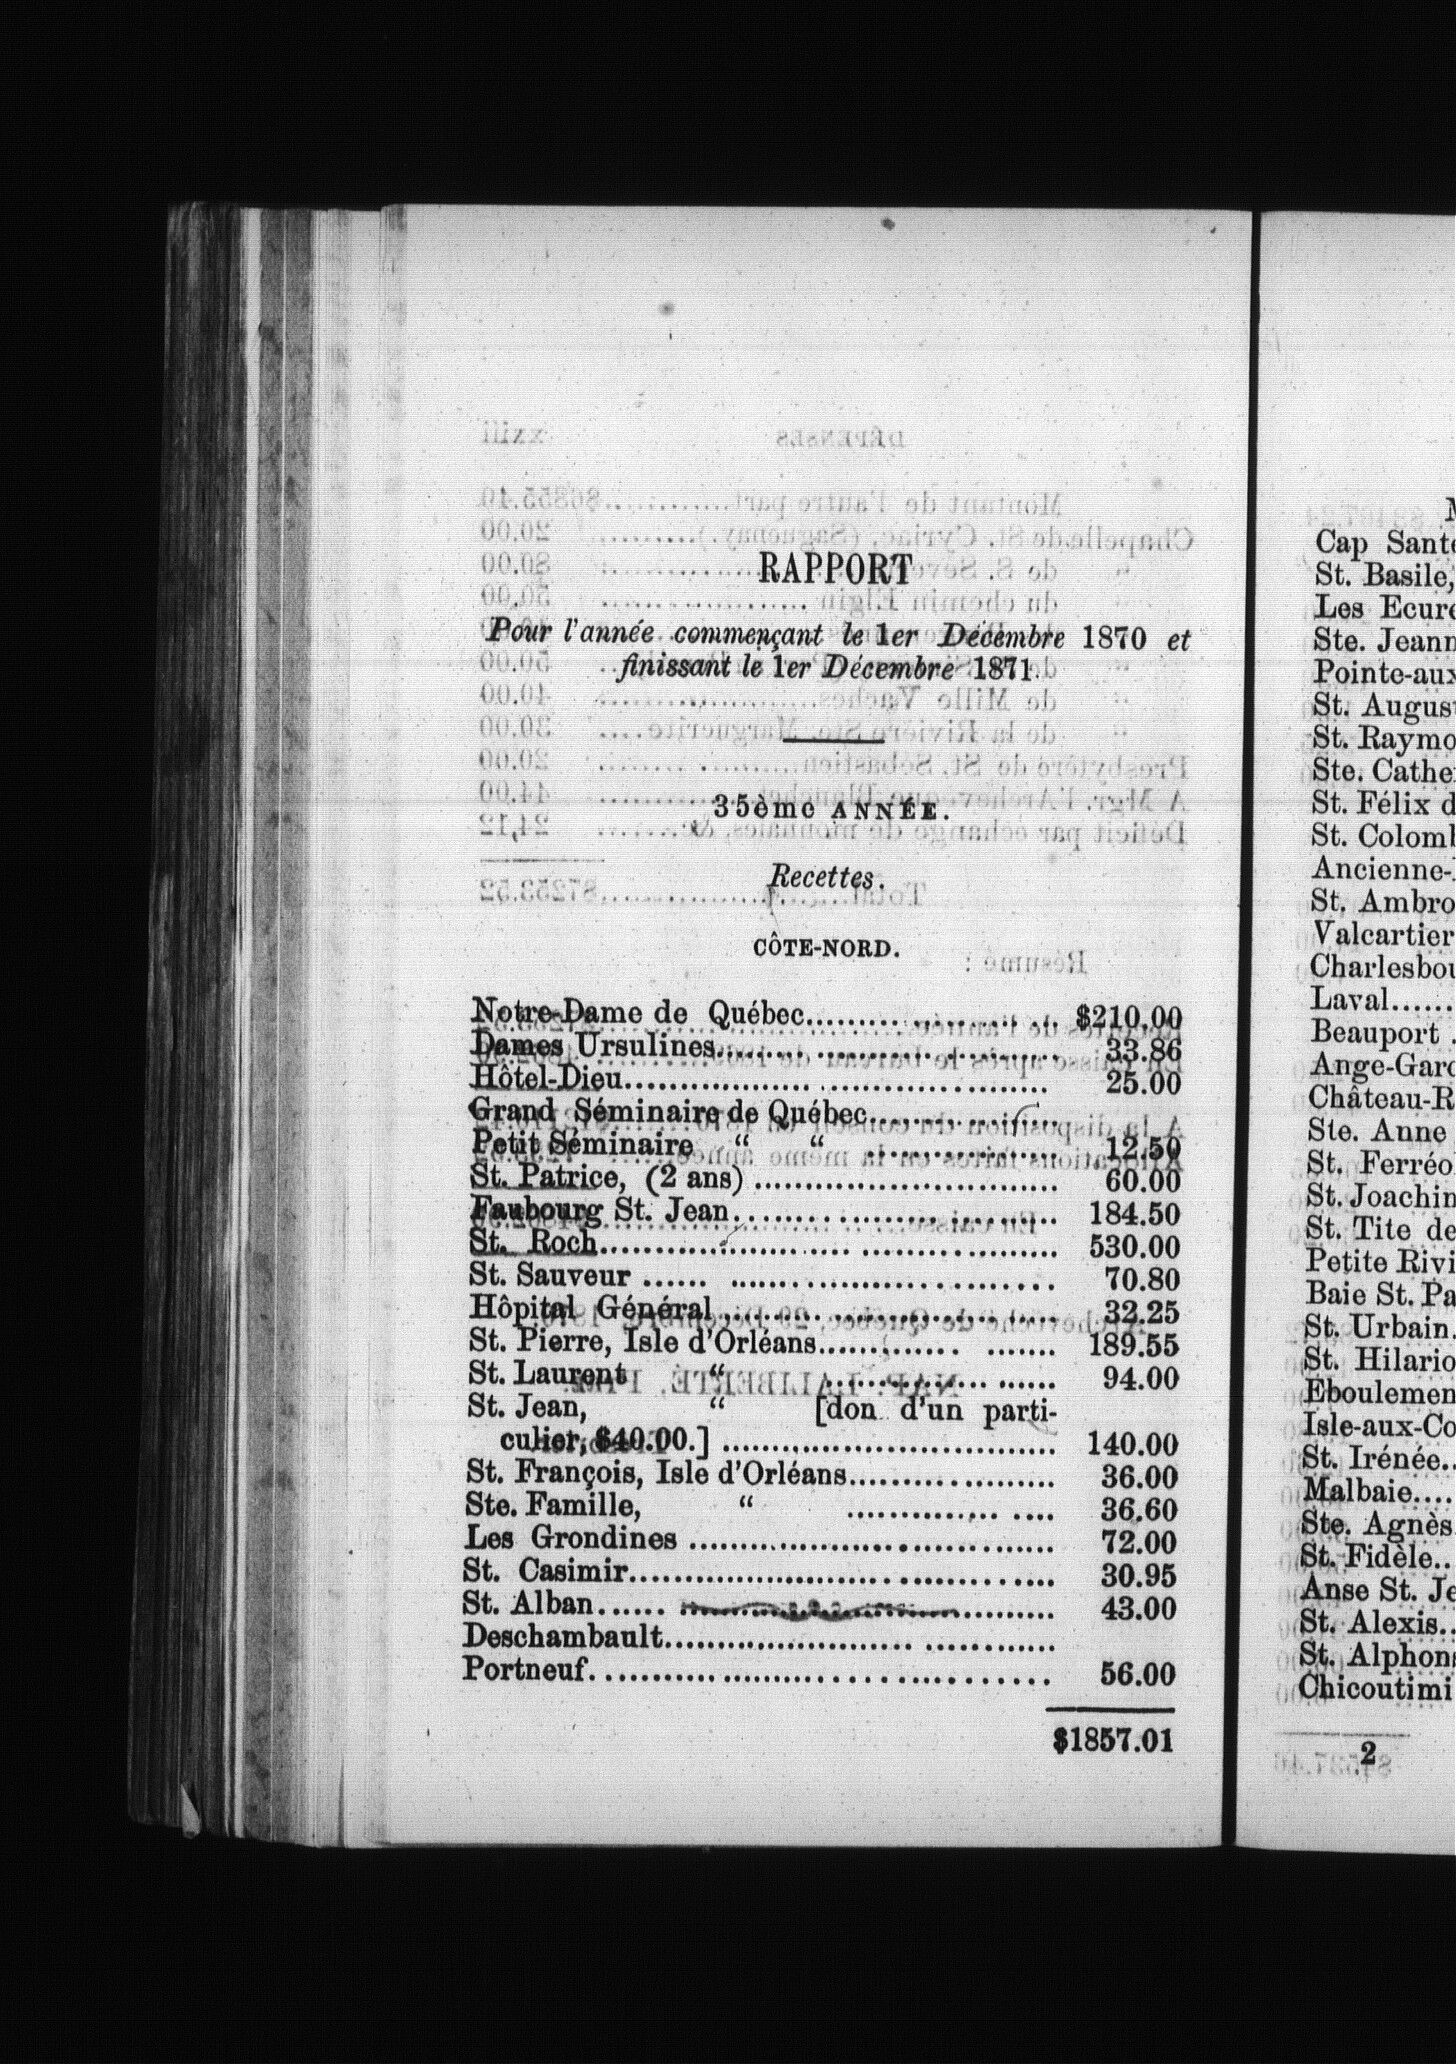 RAPPORT
Pour l'année commençant le 1er Décembre 1870 et
finissant le 1er Décembre 1871.
35ème ANNÉE.
Recettes.
CÔTE-NORD.
Notre-Dame de Québec........................ $210.00
Dames Ursulines................................ 33.86
Hôtel-Dieu....................................... 25.00
Grand Séminaire de Québec..................
Petit Séminaire “ “ .................. 12.50
St. Patrice, (2 ans) ............................. 60.00
Faubourg St. Jean............................... 184.50
St. Roch........................................... 530.00
St. Sauveur ...................................... 70.80
Hôpital Général................................. 32.25
St. Pierre, Isle d'Orléans...................... 189.55
St. Laurent “ ...................... 94.00
St. Jean, “ [don d'un parti-
culier, $40.00.] ................................ 140.00
St. François, Isle d'Orléans.................... 36.00
Ste. Famille, “ .................. 36.60
Les Grondines ................................... 72.00
St. Casimir........................................ 30.95
St. Alban.......................................... 43.00
Deschambault.....................................
Portneuf........................................... 56.00
$1857.01
Cap
St. Basile,
Les
Ste.
St.
St.
Ste.
St. Félix
St.
St.
Valcartier
Laval......
Beauport .
Ste. Anne
St.
St.
St. Tite de
Petite
Baie St.
St. Urbain.
St.
St. Irénée..
Malbaie....
Ste. Agnès
St. Fidèle..
Anse St.
St. Alexis..
St.
Chicoutimi
2